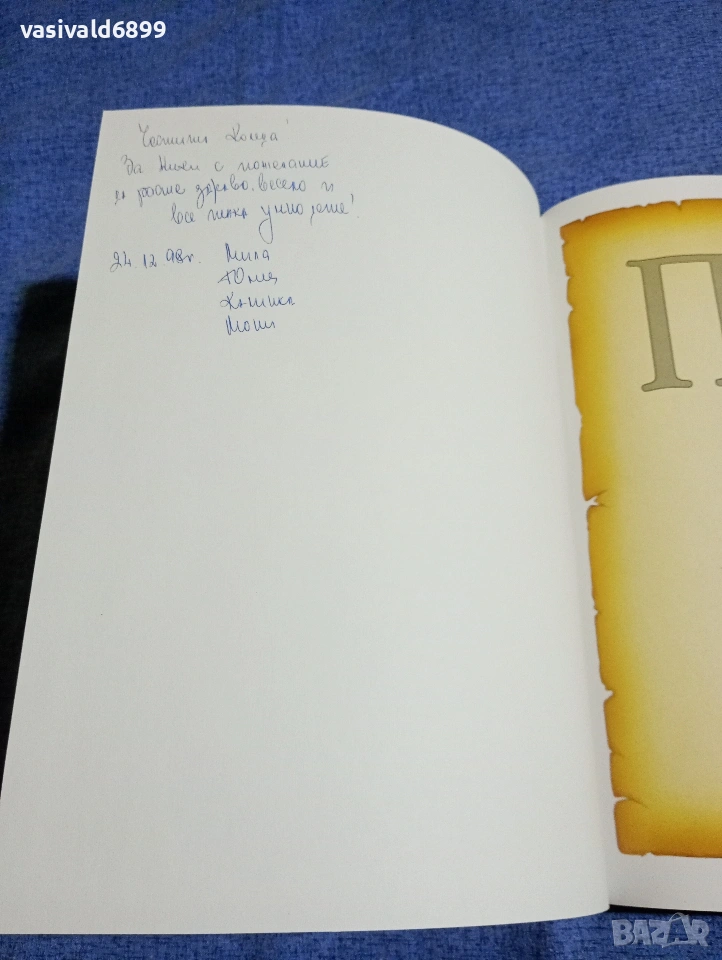 vasivald6899
Честита Коледа!
За с пожелание
да расте здраво, весело и
все така умно дете!
24.12.98г. Мила
Юлия
Мони
П
BAZAR